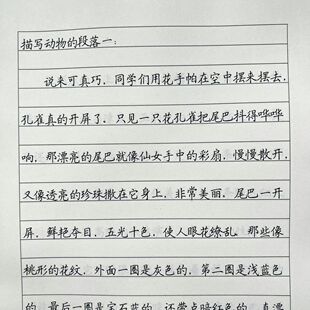 描写动物的段落一：
说来可真巧，同学们用花手帕在空中摆来摆去，
孔雀真的开屏了，只见一只花孔雀把尾巴抖得哗哗
响，那漂亮的尾巴就像仙女手中的彩扇，慢慢散开，
又像透亮的珍珠撒在它身上，非常美丽，尾巴一开
屏，鲜艳夺目，五光十色，使人眼花缭乱，那些像
桃形的花纹，外面一圈是灰色的，第二圈是浅蓝色
的，最后一圈是宝石蓝的，还带点暗红色的，真漂